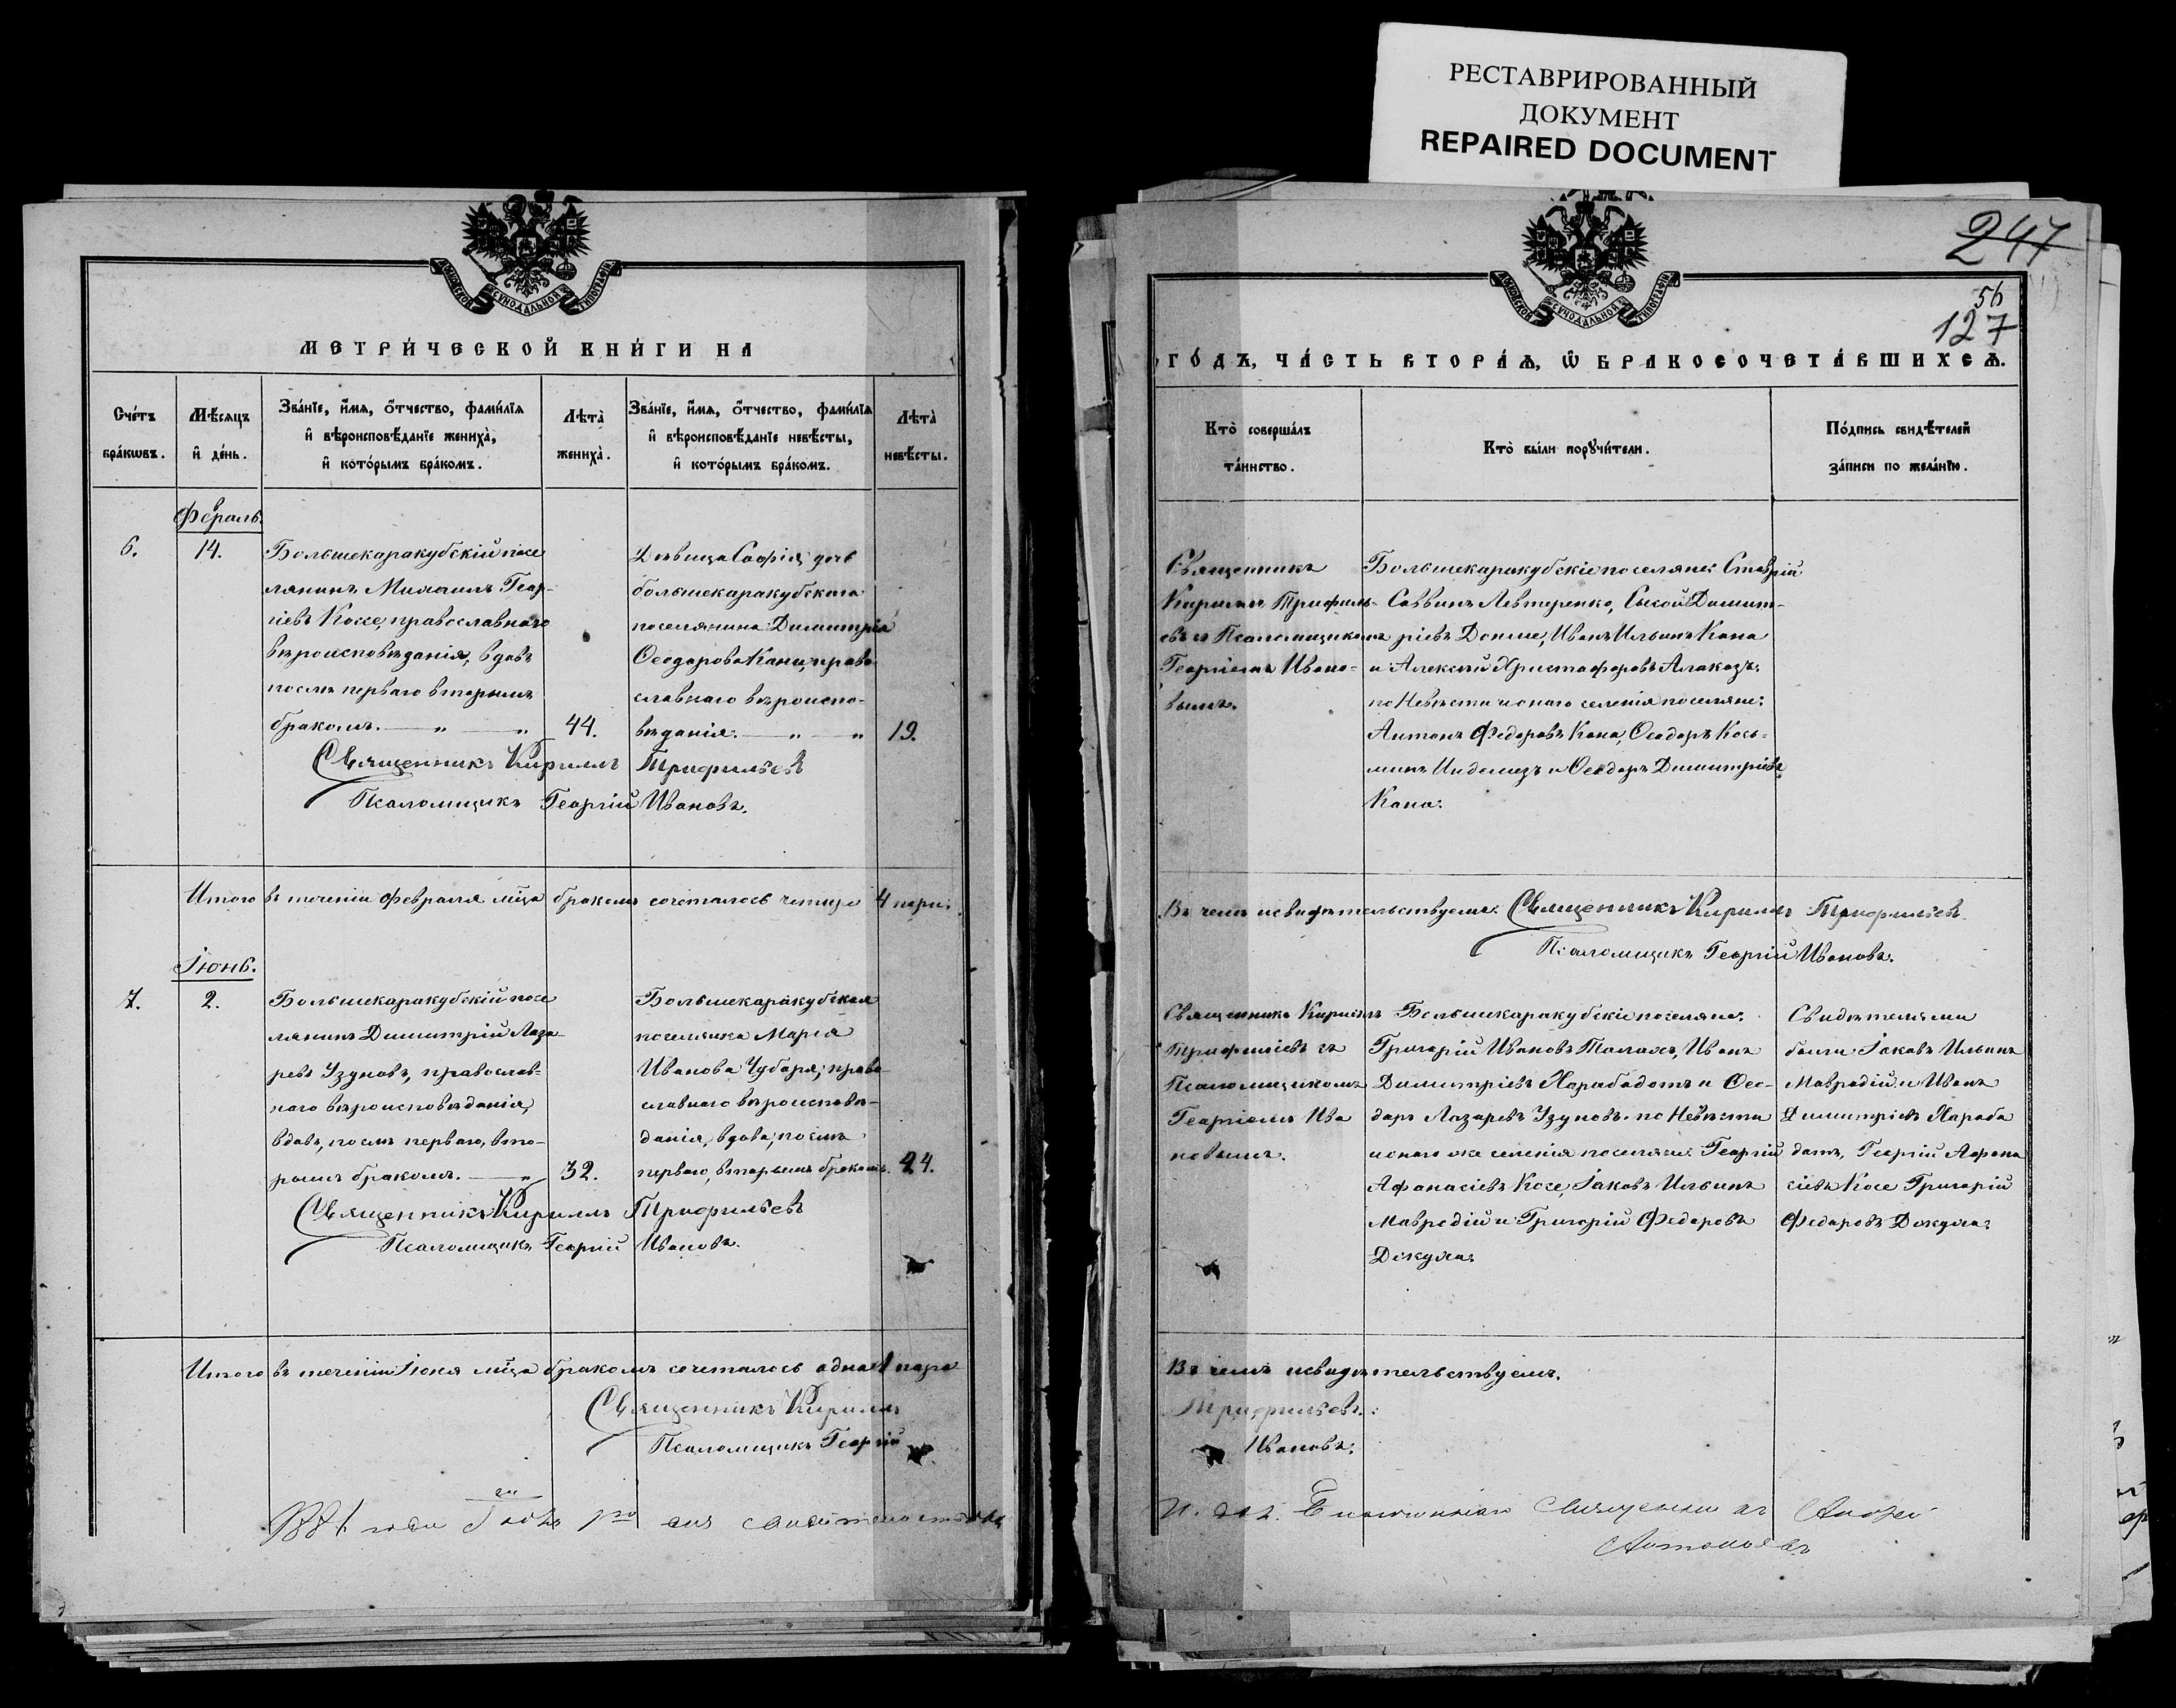 РЕСТАВРИРОВАННЫЙ
ДОКУМЕНТ
REPAIRED DOCUMENT
МОСКОВСКОЙ СѴНОДАЛЬНОЙ ТИПОГРАФІИ
МЕТРИ́ЧЕСКОЙ КНИ́ГИ НА
Сче́тъ
бра́кωвъ.
Мѣ́сяцъ
и҆ де́нь.
Зва́нїе, и҆́мя, ѻ҆́тчество, фами́лїя
и҆ вѣроисповѣ́данїе жениха̀,
и҆ кото́рымъ бра́комъ.
Лѣта̀
жениха̀.
Зва́нїе, и҆́мя, ѻ҆́тчество, фами́лїя
и҆ вѣроисповѣ́данїе невѣ́сты,
и҆ кото́рымъ бра́комъ.
Лѣта̀
невѣ́сты.
Февраль.
6.
14.
Большекаракубскій посе
лянинъ Михаилъ Геор-
гіевъ Коссе, православнаго
вѣроисповѣданія, вдовъ
послѣ перваго вторымъ
бракомъ. — „ — „
44.
Дѣвица Софія, дочь
большекаракубскаго
поселянина Димитрія
Ѳеодорова Кани, право-
славнаго вѣроиспо-
вѣданія. — „ — „
19.
Священникъ Кириллъ Трифильевъ
Псаломщикъ Георгій Ивановъ.
Итого въ теченіи февраля мѣца бракомъ сочеталось четыре 4 пары.
Іюнь.
7.
2.
Большекаракубскій посе
лянинъ Димитрій Лаза-
ревъ Узуновъ, православ-
наго вѣроисповѣданія,
вдовъ, послѣ перваго, вто-
рымъ бракомъ. — „
32.
Большекаракубская
поселянка Марія
Иванова Чубаря, право-
славнаго вѣроисповѣ-
данія, вдова, послѣ
перваго, вторымъ бракомъ.
24.
Священникъ Кириллъ Трифильевъ
Псаломщикъ Георгій Ивановъ.
Итого въ теченіи Іюня мѣца бракомъ сочеталось одна 1 пара
Священникъ Кириллъ
Псаломщикъ Георгій
года
247
56
127
МОСКОВСКОЙ СѴНОДАЛЬНОЙ ТИПОГРАФІИ
ГО́ДЪ, ЧА́СТЬ ВТОРА́Ѧ, Ѽ БРАКОСОЧЕТА́ВШИХСѦ.
Кто̀ соверша́лъ
та́инство.
Кто̀ бы́ли порꙋчи́тели.
По́дпись свидѣ́телей
за́писи по жела́нїю.
Священникъ
Кириллъ Трифиль-
евъ съ Псаломщикомъ
Георгіемъ Ивано-
вымъ.
Большекаракубскіе поселяне: Ставрій
Саввинъ Левтеренко, Сысой Димит-
ріевъ Донше, Иванъ Ильинъ Кана
и Алексѣй Христофоровъ Алакозъ;
по Невѣсти и онаго селенія поселяне:
Антонъ Федоровъ Кана, Ѳеодоръ Кось-
минъ Индемезъ и Ѳеодоръ Димитріевъ
Кана.
Въ чемъ и свидѣтельствуемъ: Священникъ Кириллъ Трифильевъ.
Псаломщикъ Георгій Ивановъ.
Священникъ Кириллъ
Трифиліевъ съ
Псаломщикомъ
Георгіемъ Ива
новымъ.
Большекаракубскіе поселяне:
Григорій Ивановъ Талахъ, Иванъ
Димитріевъ Харабадотъ и Ѳео-
доръ Лазаревъ Узуновъ. по Невѣсти
и онаго же селенія поселяне: Георгій
Афанасіевъ Косе, Іаковъ Ильинъ
Мавродій и Григорій Федоровъ
Докума.
Свидѣтелями
были Іаковъ Ильинъ
Мавродій и Иванъ
Димитріевъ Хараба
дотъ, Георгій Афана
сіевъ Косе Григорій
Федоровъ Докума.
Въ чемъ и свидѣтельствуемъ.
Трифильевъ.
Ивановъ.
Благочиннаго Священникъ Андрей
Антоновъ